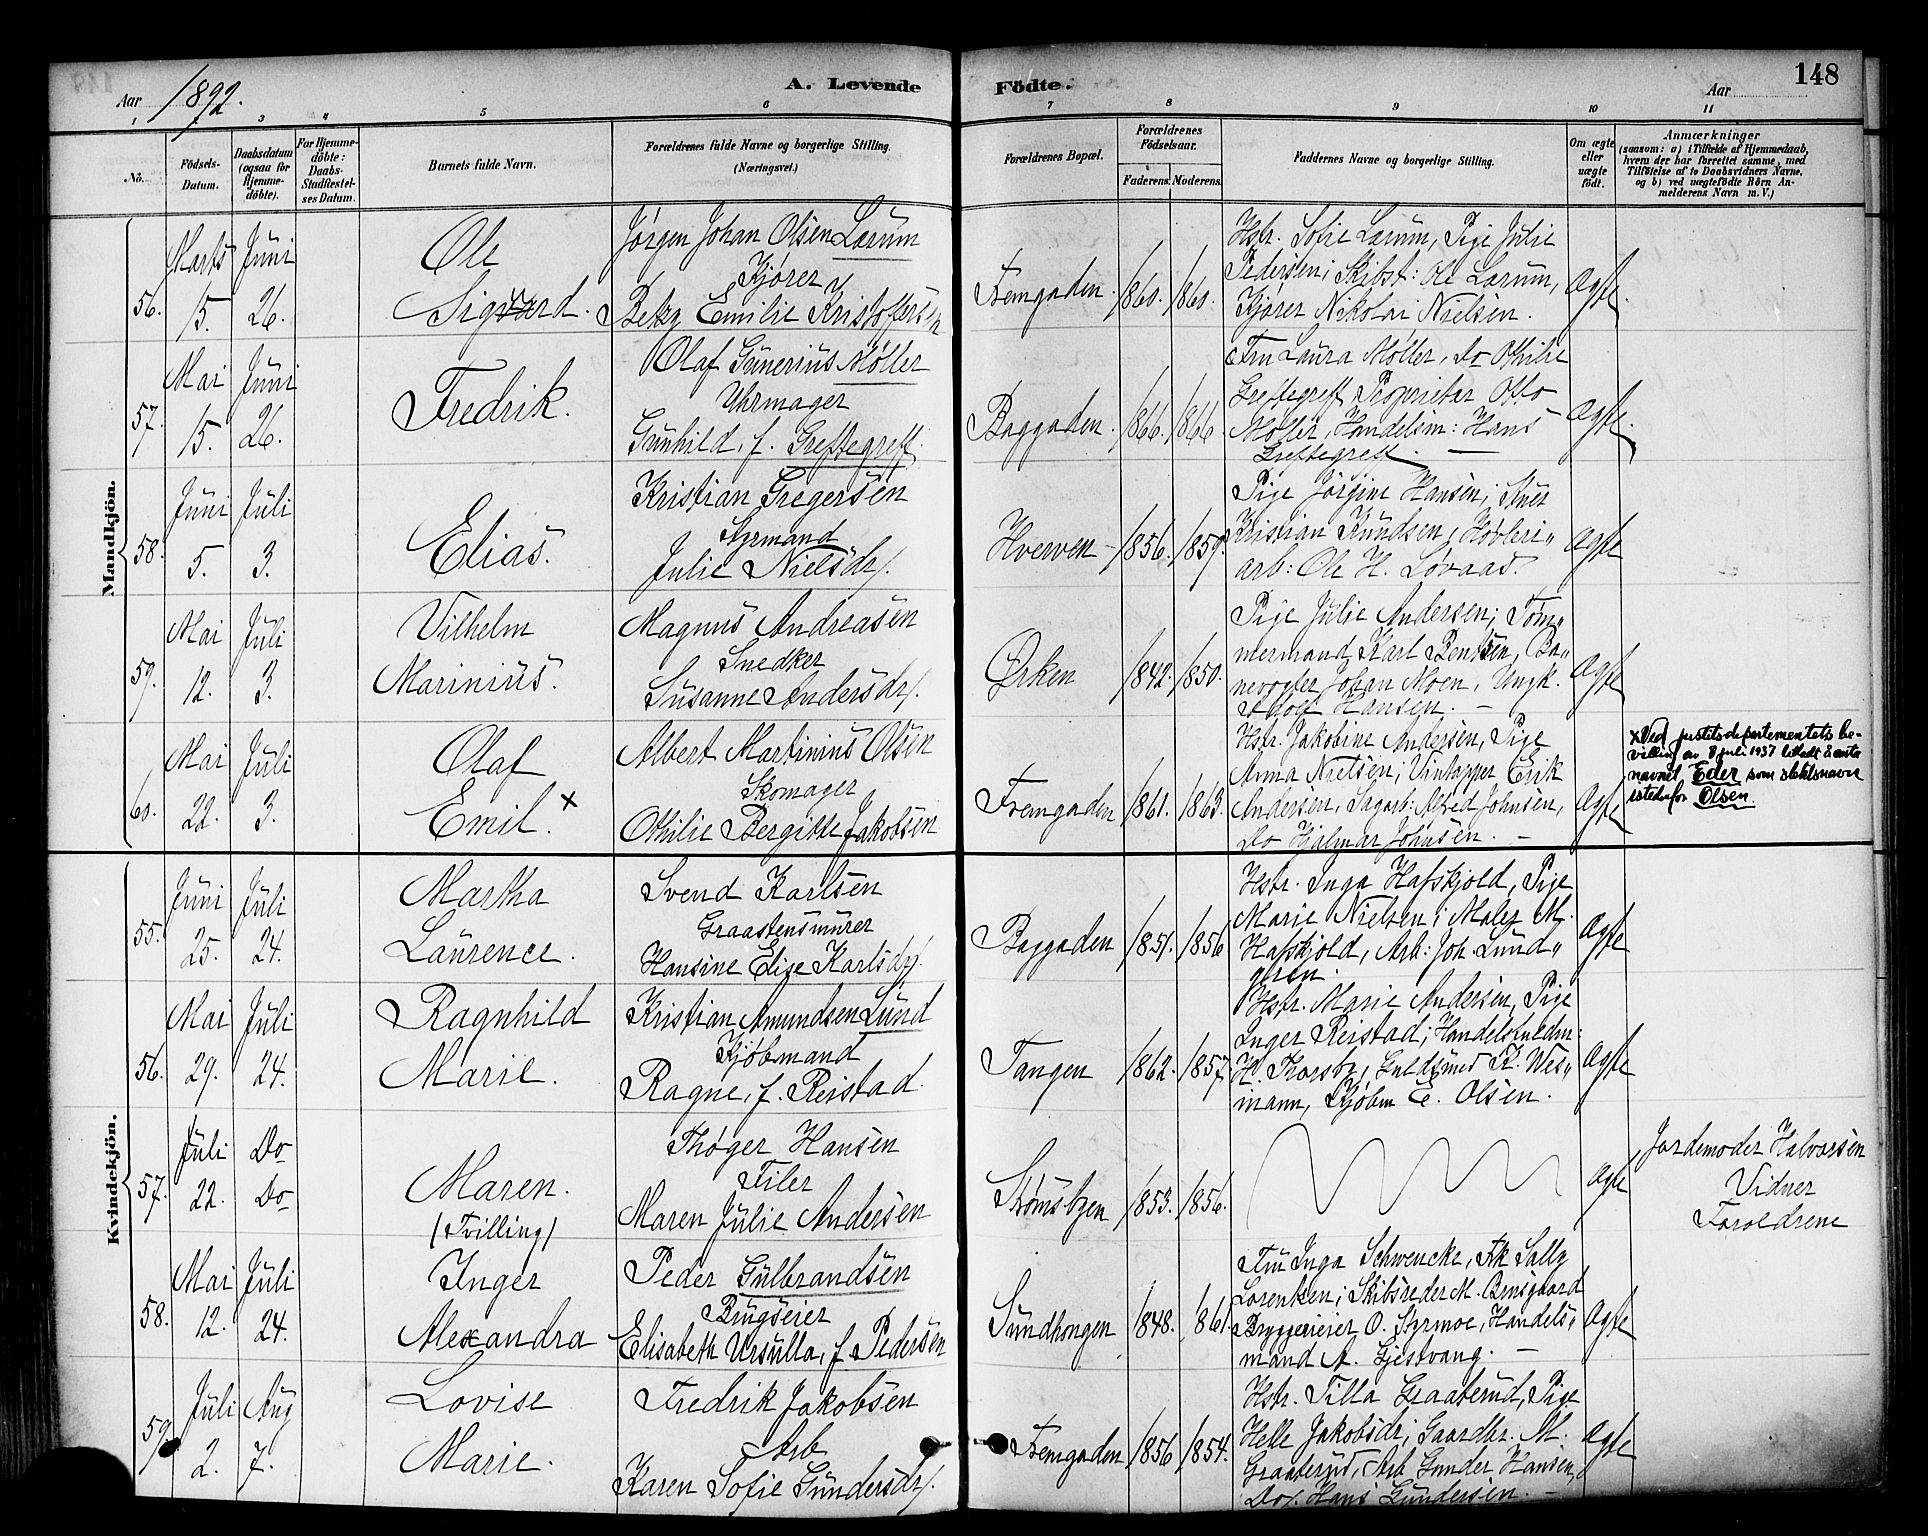 Aar 1892.
A. Levende
Födte.
Aar
148
1
3
4
5
6
7
8
9
10
11
No.
Födsels-Datum.
Daabsdatum (ogsaa for Hjemme-döbte).
For Hjemme-döbte: Daabs-Stadfæstel-ses Datum.
Barnets fulde Navn.
Forældrenes fulde Navne og borgerlige Stilling.
(Næringsvei.)
Forældrenes Bopæl.
Forældrenes Födselsaar.
Faderens. Moderens.
Faddernes Navne og borgerlige Stilling.
Om ægte eller uægte födt.
Anmærkninger
(saasom: a) i Tilfælde af Hjemmedaab,
hvem der har forrettet samme, med
Tilföielse af to Daabsvidners Navne,
og b) ved uægtefödte Börn An-
melderens Navn m. V.)
Mandkjön.
56. Marts 15. Juni 26.
Ole
Sigvard.
Jørgen Johan Olsen Lærum
Kjører
Betzy Emilie Kristofersen
Fremgaden. 1860. 1860.
Hstr. Sofie Lærum, Pige Julie
Pedersen; Skibst: Ole Lærum,
Kjører Nikolai Nielsen.
Ægte.
57. Mai 15. Juni 26.
Fredrik.
Olaf Gunerius Møller
Uhrmager
Gunhild, f. Greftegreff
Baggaden. 1866. 1866.
Fru Laura Møller, Do Othilie
Greftegreff Proprietær Otto
Møller, Handelsm: Hans
Greftegreff. —
Ægte.
58. Juni 5. Juli 3.
Elias.
Kristian Gregersen
Styrmand
Julie Nielsdr.
Hverven 1856. 1859.
Pige Jørgine Hansen;
Kristian Knudsen, Høvleri„
arb: Ole H. Løvaas.
Ægte
59. Mai 12. Juli 3.
Vilhelm
Marinius.
Magnus Andreasen
Snedker
Susanne Andersdr.
Ørken 1842. 1850.
Pige Julie Andersen; Tøm„
mermand Karl Bentsen, Ba„
nevogter Johan Moen, Ungk.
Adolf Hansen. —
Ægte
60. Mai 22. Juli 3.
Olaf
Emil. x
Albert Martinius Olsen
Skomager
Othilie Bergitte Jakobsen
Fremgaden 1861. 1863.
Hstr. Jakobine Andersen, Pige
Anna Nielsen; Vintapper Erik
Andersen, Sagarb: Alfred Johnsen,
Do Hjalmar Johnsen. —
Ægte
x Ved justitsdepartementets be-
villing av 8 juli 1937 tilladt å anta
navnet Eder som slektsnavn
istedenfor Olsen.
Kvindekjön.
55. Juni 25. Juli 24.
Martha
Laurence.
Svend Karlsen
Graastensmurer
Hansine Elise Karlsdr.
Baggaden 1851. 1856
Hstr. Inga Hafskjold, Pige
Marie Nielsen; Maler M.
Hafskjold, Arb: Joh. Lund„
gren.
Ægte
56. Mai 29. Juli 24.
Ragnhild
Marie.
Kristian Amundsen Lund
Kjøbmand
Ragne, f. Reistad
Tangen 1862. 1857
Hstr. Marie Andersen, Pige
Inger Reistad; Handelsbuldm:
H. Thorsby, Guldsmed K. Wes„
mann, Kjøbm E. Olsen.
Ægte
57. Juli 22. Do Do
Maren.
(Tvilling)
Thøger Hansen
Filer
Maren Julie Andersen
Strømsbyen 1853. 1856.
Ægte
Jordemoder Halvorsen
Vidner
Foreldrene
58. Mai 12. Juli 24.
Inger
Alexandra
Peder Gulbrandsen
Brugseier
Elisabeth Ursulla, f. Pedersen
Sundhougen 1848. 1861.
Fru Inga Schwencke, Frk Sally
Lorentzen; Skibsreder M. Brusgaard
Bryggerieier O. Styrmoe, Handels„
mand A. Gjestvang. —
Ægte
59. Juli 2. Aug 7.
Lovise
Marie.
Fredrik Jakobsen
Arb
Karen Sofie Gundersdr.
Fremgaden 1856 1854.
Hstr. Tilla Graaterud, Pige
Helle Jakobsdr; Gaardbr. M.
Graaterud, Arb Gunder Hansen,
Do. Hans Gundersen. —
Ægte